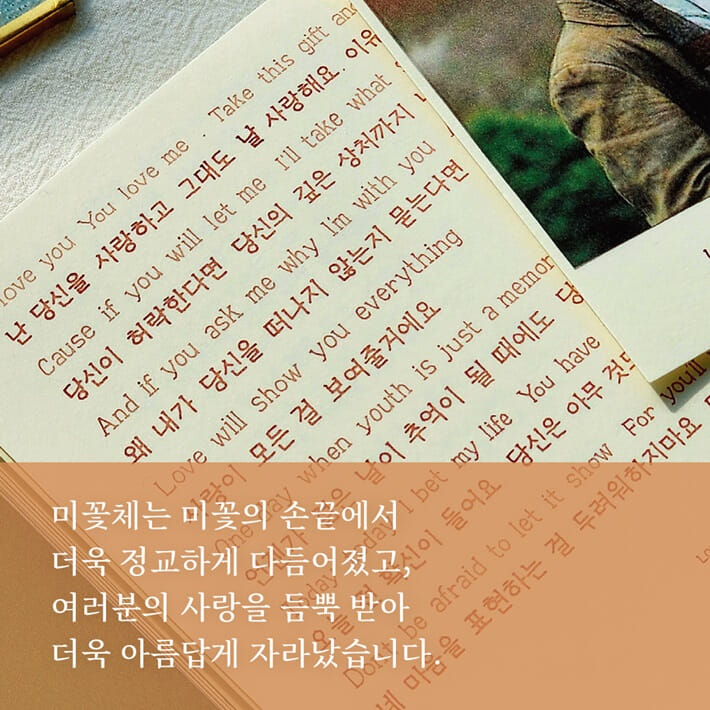 love you You love me . Take this gift and
난 당신을 사랑하고 그대도 날 사랑해요. 이유
Cause if you will let me I'll take what
당신이 허락한다면 당신의 깊은 상처까지
And if you ask me why I'm with you
왜 내가 당신을 떠나지 않는지 묻는다면
Love will show you everything
사랑이 모든 걸 보여줄거에요
One day when youth is just a memory
언젠가 젊은 날이 추억이 될 때에도 당
I bet my life You have
확신이 들어요 당신은 아무 것도
Don't be afraid to let it show For you'll
네 마음을 표현하는 걸 두려워하지마요
미꽃체는 미꽃의 손끝에서
더욱 정교하게 다듬어졌고,
여러분의 사랑을 듬뿍 받아
더욱 아름답게 자라났습니다.